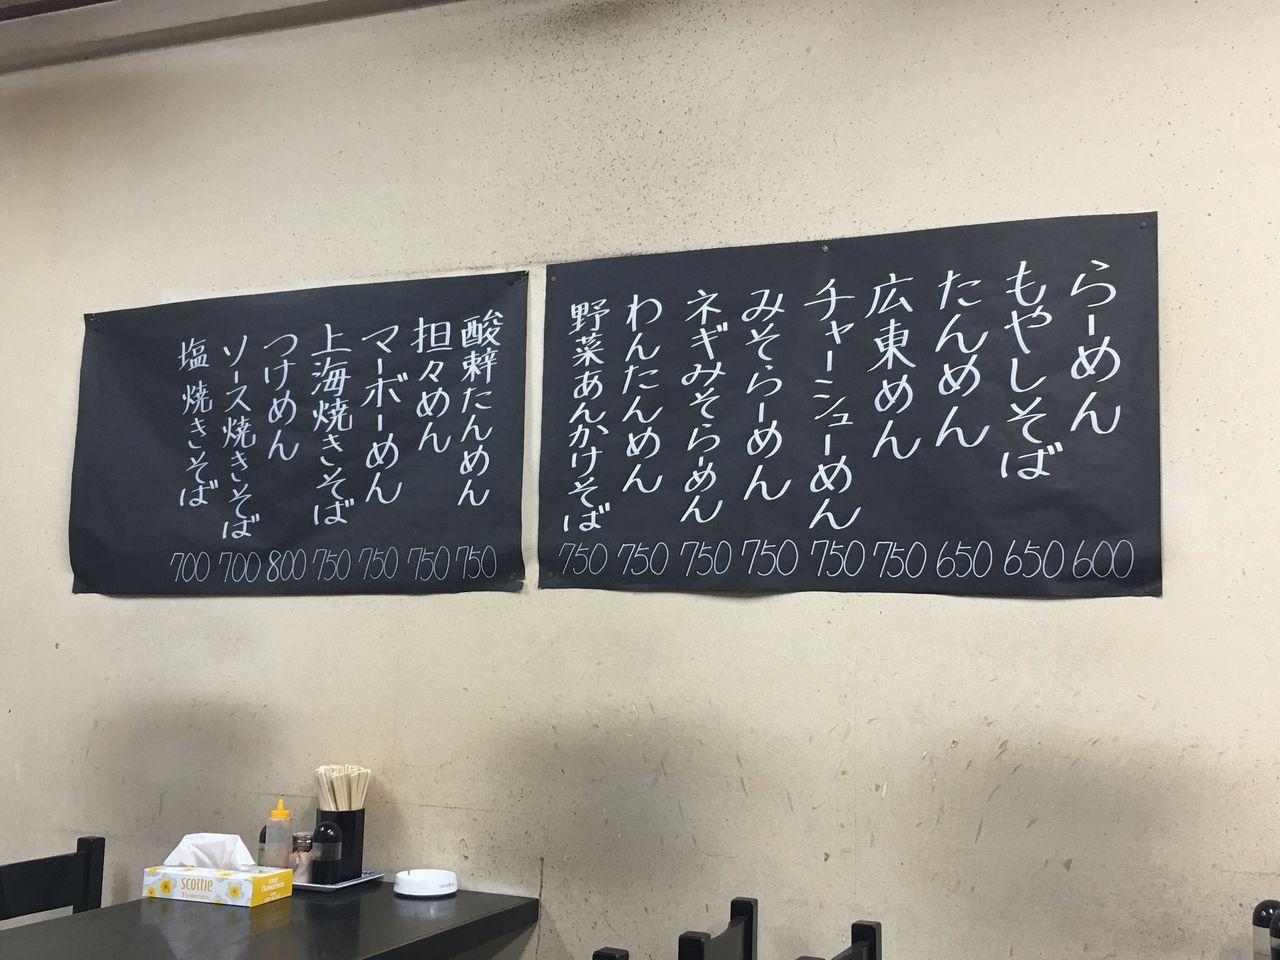 らーめん 600
もやしそば 650
たんめん 650
広東めん 750
チャーシューめん 750
みそらーめん 750
ネギみそらーめん 750
わんたんめん 750
野菜あんかけそば 750
酸辣たんめん 750
担々めん 750
マーボーめん 750
上海焼きそば 750
つけめん 800
ソース焼きそば 700
塩焼きそば 700
scottie